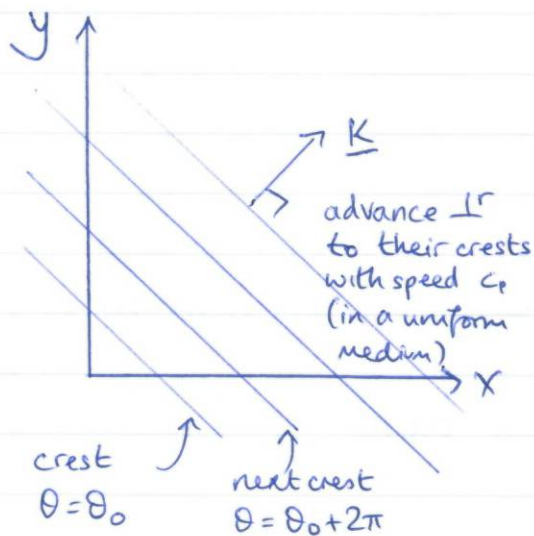 y
K
advance ⊥r
to their crests
with speed cp
(in a uniform
medium)
x
crest
θ = θ0
next crest
θ = θ0 + 2π